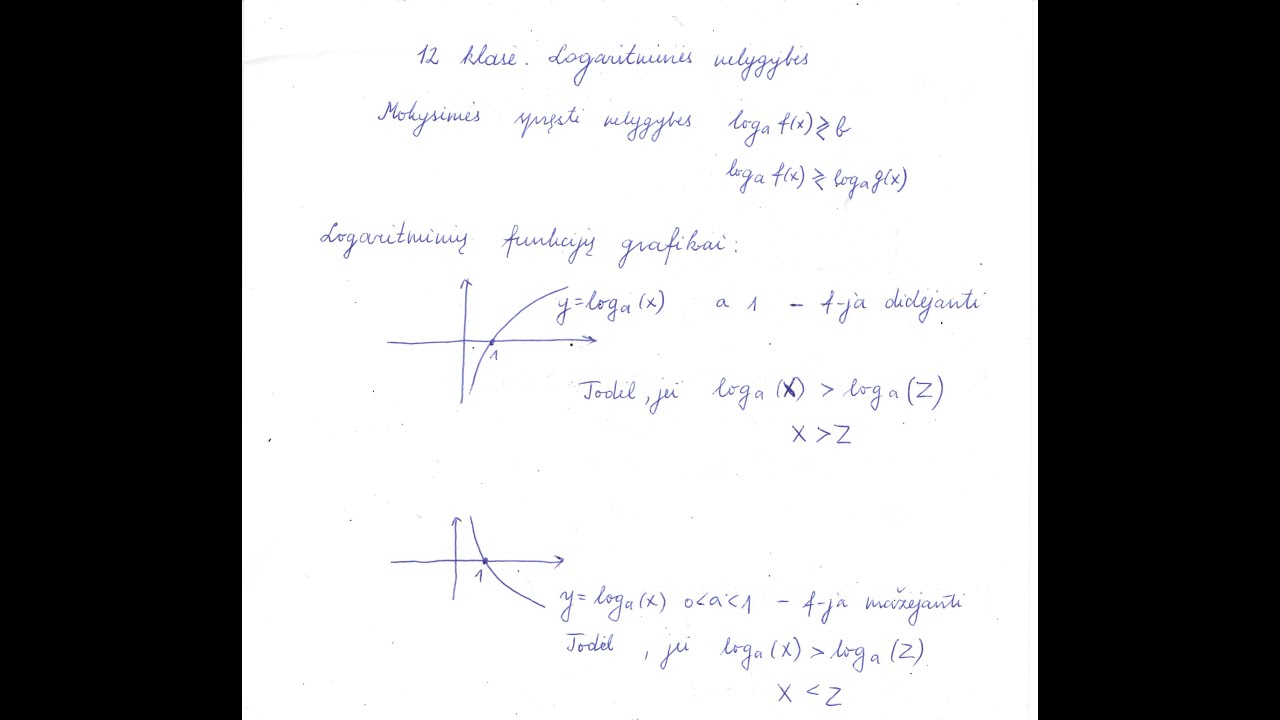 12 klasė. Logaritminės nelygybės
Mokysimės spręsti nelygybes loga f(x) ⩾ b
loga f(x) ⩾ loga g(x)
Logaritminių funkcijų grafikai:
y=loga(x) a 1 – f-ja didėjanti
1
Todėl, jei loga(x) > loga(Z)
X > Z
1
y=loga(x) 0<a<1 – f-ja mažėjanti
Todėl, jei loga(X) > loga(Z)
X < Z